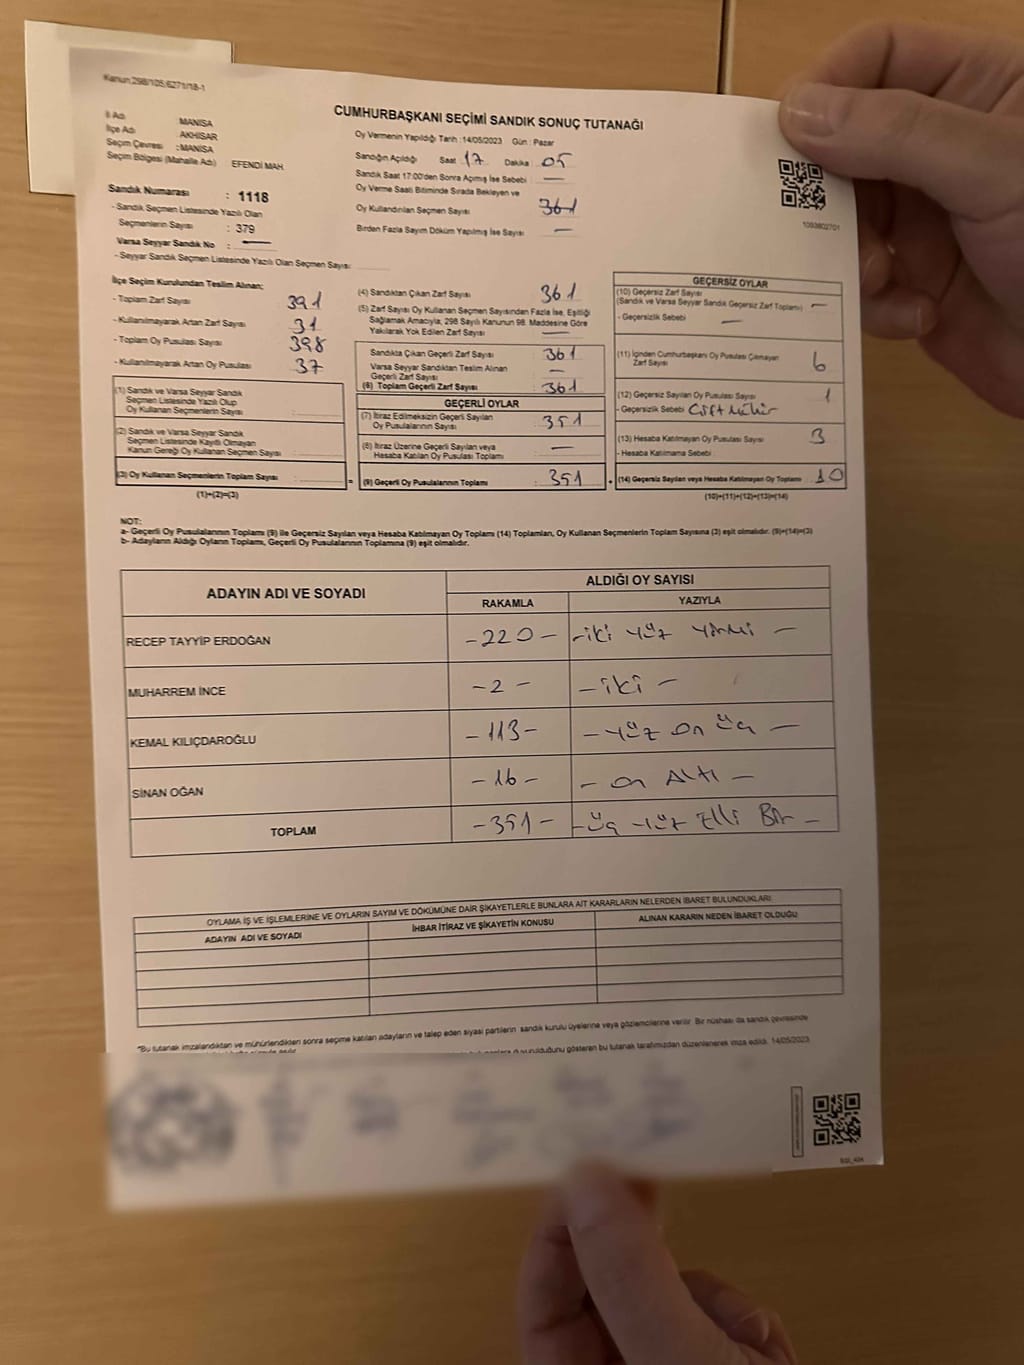 Kanun:298/105;6271/18-1
CUMHURBAŞKANI SEÇİMİ SANDIK SONUÇ TUTANAĞI
İl Adı MANİSA
İlçe Adı AKHİSAR
Seçim Çevresi :MANİSA
Seçim Bölgesi (Mahalle Adı) EFENDİ MAH.
Oy Vermenin Yapıldığı Tarih :14/05/2023 Gün : Pazar
Sandığın Açıldığı Saat 17 Dakika 05
Sandık Saat 17:00'den Sonra Açımış İse Sebebi : —
Oy Verme Saati Bitiminde Sırada Bekleyen ve
Oy Kullandırılan Seçmen Sayısı 361
Birden Fazla Sayım Döküm Yapılmış İse Sayısı —
1093802701
Sandık Numarası : 1118
- Sandık Seçmen Listesinde Yazılı Olan
Seçmenlerin Sayısı : 379
Varsa Seyyar Sandık No : —
- Seyyar Sandık Seçmen Listesinde Yazılı Olan Seçmen Sayısı:
İlçe Seçim Kurulundan Teslim Alınan;
- Toplam Zarf Sayısı 391
- Kullanılmayarak Artan Zarf Sayısı 31
- Toplam Oy Pusulası Sayısı 398
- Kullanılmayarak Artan Oy Pusulası 37
(1) Sandık ve Varsa Seyyar Sandık
Seçmen Listesinde Yazılı Olup
Oy Kullanan Seçmenlerin Sayısı :
(2) Sandık ve Varsa Seyyar Sandık
Seçmen Listesinde Kayıtlı Olmayan
Kanun Gereği Oy Kullanan Seçmen Sayısı :
(3) Oy Kullanan Seçmenlerin Toplam Sayısı :
(1)+(2)=(3)
(4) Sandıktan Çıkan Zarf Sayısı 361
(5) Zarf Sayısı Oy Kullanan Seçmen Sayısından Fazla İse, Eşitliği
Sağlamak Amacıyla, 298 Sayılı Kanunun 98. Maddesine Göre
Yakılarak Yok Edilen Zarf Sayısı : —
Sandıkta Çıkan Geçerli Zarf Sayısı 361
Varsa Seyyar Sandıktan Teslim Alınan
Geçerli Zarf Sayısı —
(6) Toplam Geçerli Zarf Sayısı : 361
GEÇERLİ OYLAR
(7) İtiraz Edilmeksizin Geçerli Sayılan
Oy Pusulalarının Sayısı : 351
(8) İtiraz Üzerine Geçerli Sayılan veya
Hesaba Katılan Oy Pusulası Toplamı : —
= (9) Geçerli Oy Pusulalarının Toplamı : 351 +
GEÇERSİZ OYLAR
(10) Geçersiz Zarf Sayısı
(Sandık ve Varsa Seyyar Sandık Geçersiz Zarf Toplamı) : —
- Geçersizlik Sebebi : —
(11) İçinden Cumhurbaşkanı Oy Pusulası Çıkmayan
Zarf Sayısı 6
(12) Geçersiz Sayılan Oy Pusulası Sayısı 1
- Geçersizlik Sebebi Çift Mühür
(13) Hesaba Katılmayan Oy Pusulası Sayısı 3
- Hesaba Katılmama Sebebi :
(14) Geçersiz Sayılan veya Hesaba Katılmayan Oy Toplamı : 10
(10)+(11)+(12)+(13)=(14)
NOT:
a- Geçerli Oy Pusulalarının Toplamı (9) ile Geçersiz Sayılan veya Hesaba Katılmayan Oy Toplamı (14) Toplamları, Oy Kullanan Seçmenlerin Toplam Sayısına (3) eşit olmalıdır. (9)+(14)=(3)
b- Adayların Aldığı Oyların Toplamı, Geçerli Oy Pusulalarının Toplamına (9) eşit olmalıdır.
ADAYIN ADI VE SOYADI ALDIĞI OY SAYISI
RAKAMLA YAZIYLA
RECEP TAYYİP ERDOĞAN -220- -iki yüz yirmi-
MUHARREM İNCE -2- -iki-
KEMAL KILIÇDAROĞLU -113- -yüz on üç-
SİNAN OĞAN -16- -on Altı-
TOPLAM -351- -üç yüz Elli Bir-
OYLAMA İŞ VE İŞLEMLERİNE VE OYLARIN SAYIM VE DÖKÜMÜNE DAİR ŞİKAYETLERLE BUNLARA AİT KARARLARIN NELERDEN İBARET BULUNDUKLARI
ADAYIN ADI VE SOYADI İHBAR İTİRAZ VE ŞİKAYETİN KONUSU ALINAN KARARIN NEDEN İBARET OLDUĞU
*Bu tutanak imzalandıktan ve mühürlendikten sonra seçime katılan adayların ve talep eden siyasi partilerin sandık kurulu üyelerine veya gözlemcilerine verilir. Bir nüshası da sandık çevresinde
duyurulduğunu gösteren bu tutanak tarafımızdan düzenlenerek imza edildi. 14/05/2023